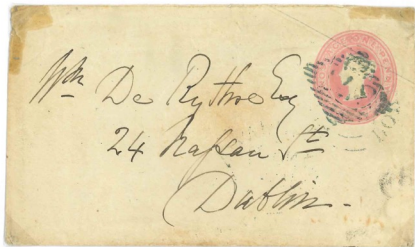 Wm De Rythre Esq
24 Nassau St
Dublin